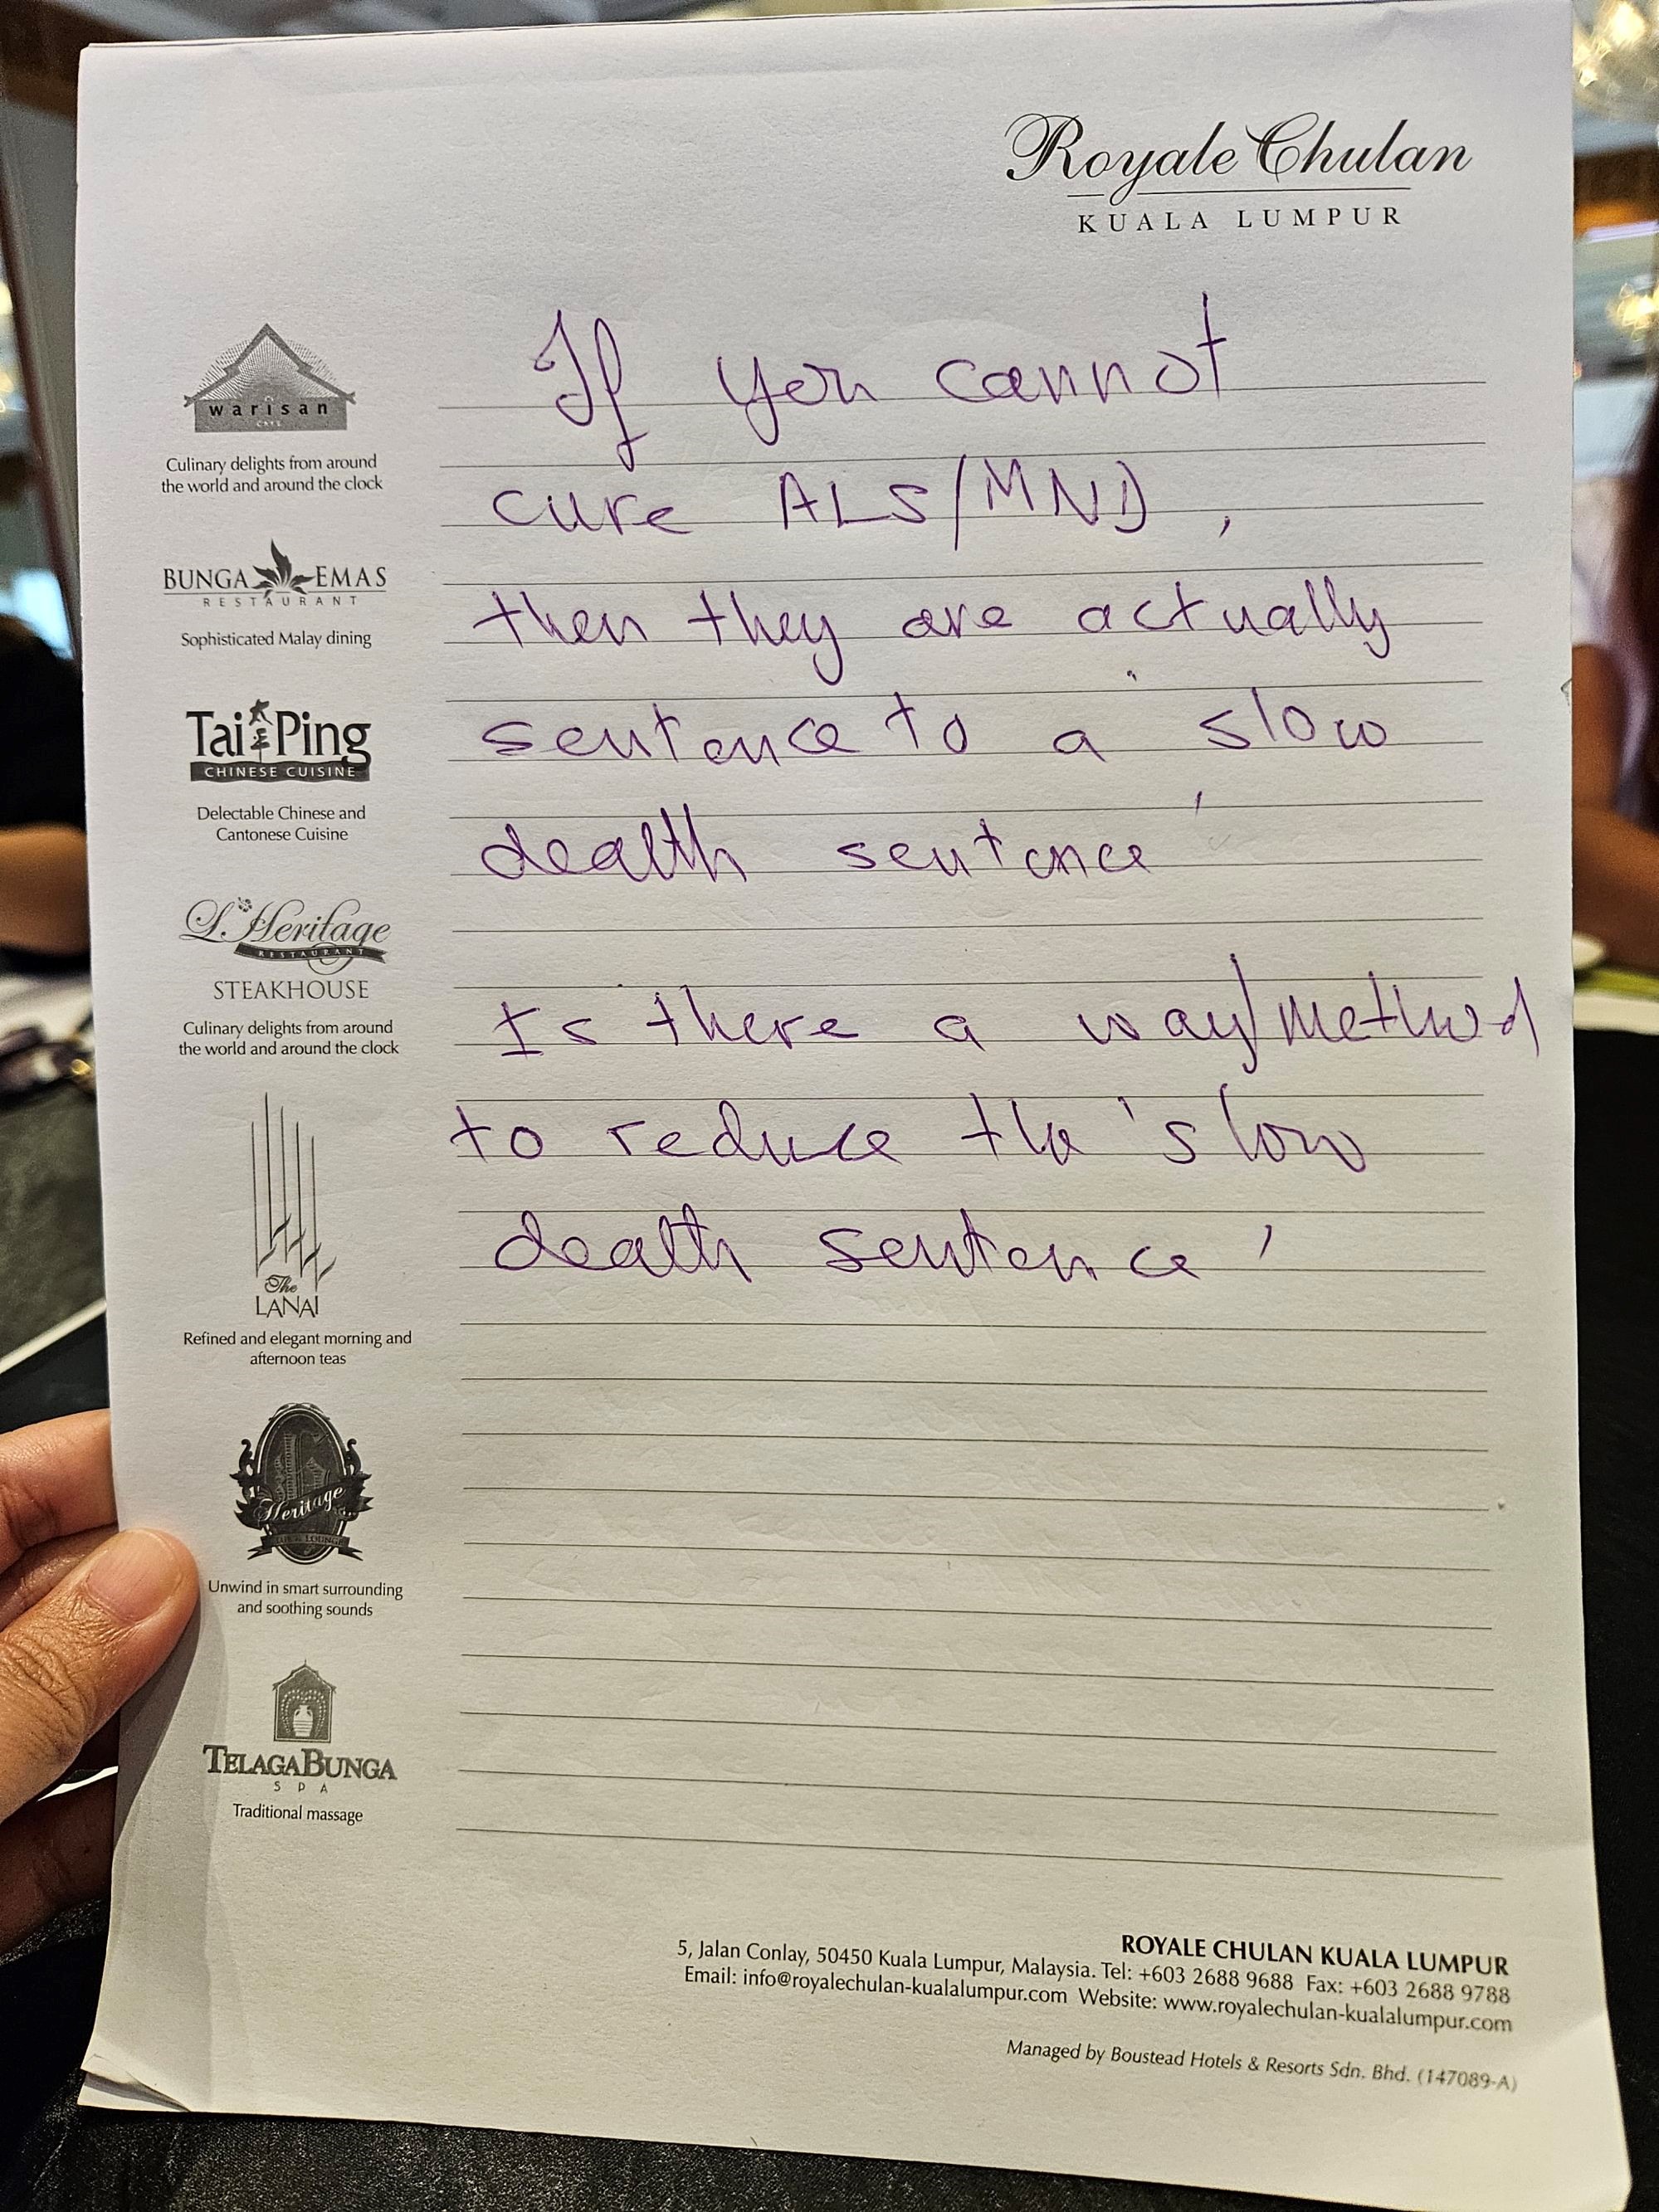 Royale Chulan
KUALA LUMPUR
If you cannot
cure ALS/MND,
then they are actually
sentence to a 'slow
death sentence'
Is there a way/method
to reduce the 'slow
death sentence'
warisan
CAFE
Culinary delights from around
the world and around the clock
BUNGA EMAS
RESTAURANT
Sophisticated Malay dining
Tai Ping
太平
CHINESE CUISINE
Delectable Chinese and
Cantonese Cuisine
L'Heritage
RESTAURANT
STEAKHOUSE
Culinary delights from around
the world and around the clock
The
LANAI
Refined and elegant morning and
afternoon teas
Heritage
Unwind in smart surrounding
and soothing sounds
TELAGA BUNGA
SPA
Traditional massage
ROYALE CHULAN KUALA LUMPUR
5, Jalan Conlay, 50450 Kuala Lumpur, Malaysia. Tel: +603 2688 9688 Fax: +603 2688 9788
Email: info@royalechulan-kualalumpur.com Website: www.royalechulan-kualalumpur.com
Managed by Boustead Hotels & Resorts Sdn. Bhd. (147089-A)